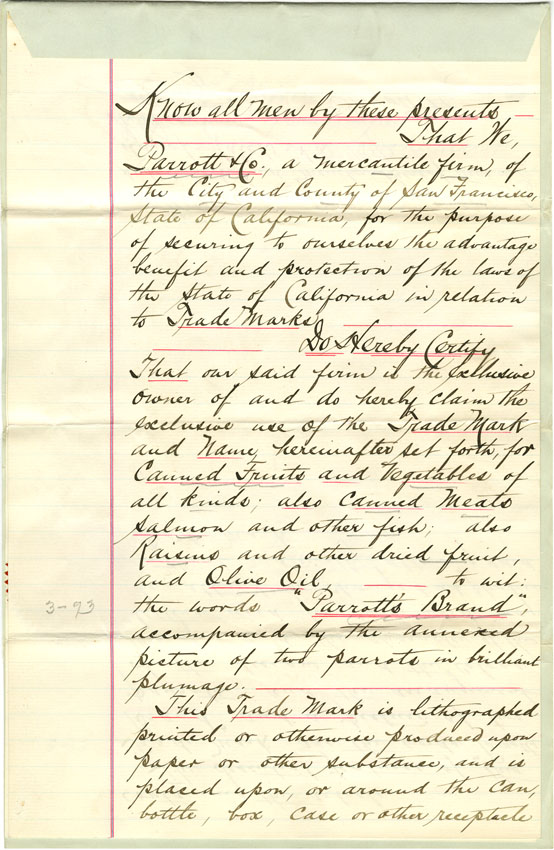 Know all men by these presents
That We,
Parrott & Co., a mercantile firm, of
the City and County of San Francisco,
State of California, for the purpose
of securing to ourselves the advantage
benefit and protection of the laws of
the State of California in relation
to Trade Marks,
Do Hereby Certify
That our said firm is the exclusive
owner of and do hereby claim the
exclusive use of the Trade Mark
and Name, hereinafter set forth, for
Canned Fruits and Vegetables of
all kinds; also Canned Meats
Salmon and other fish; also
Raisins and other dried fruit,
and Olive Oil, to wit:
3-93
the words "Parrott's Brand",
accompanied by the annexed
picture of two parrots in brilliant
plumage.
This Trade Mark is lithographed
printed or otherwise produced upon
paper or other substance, and is
placed upon, or around the can,
bottle, box, case or other receptacle